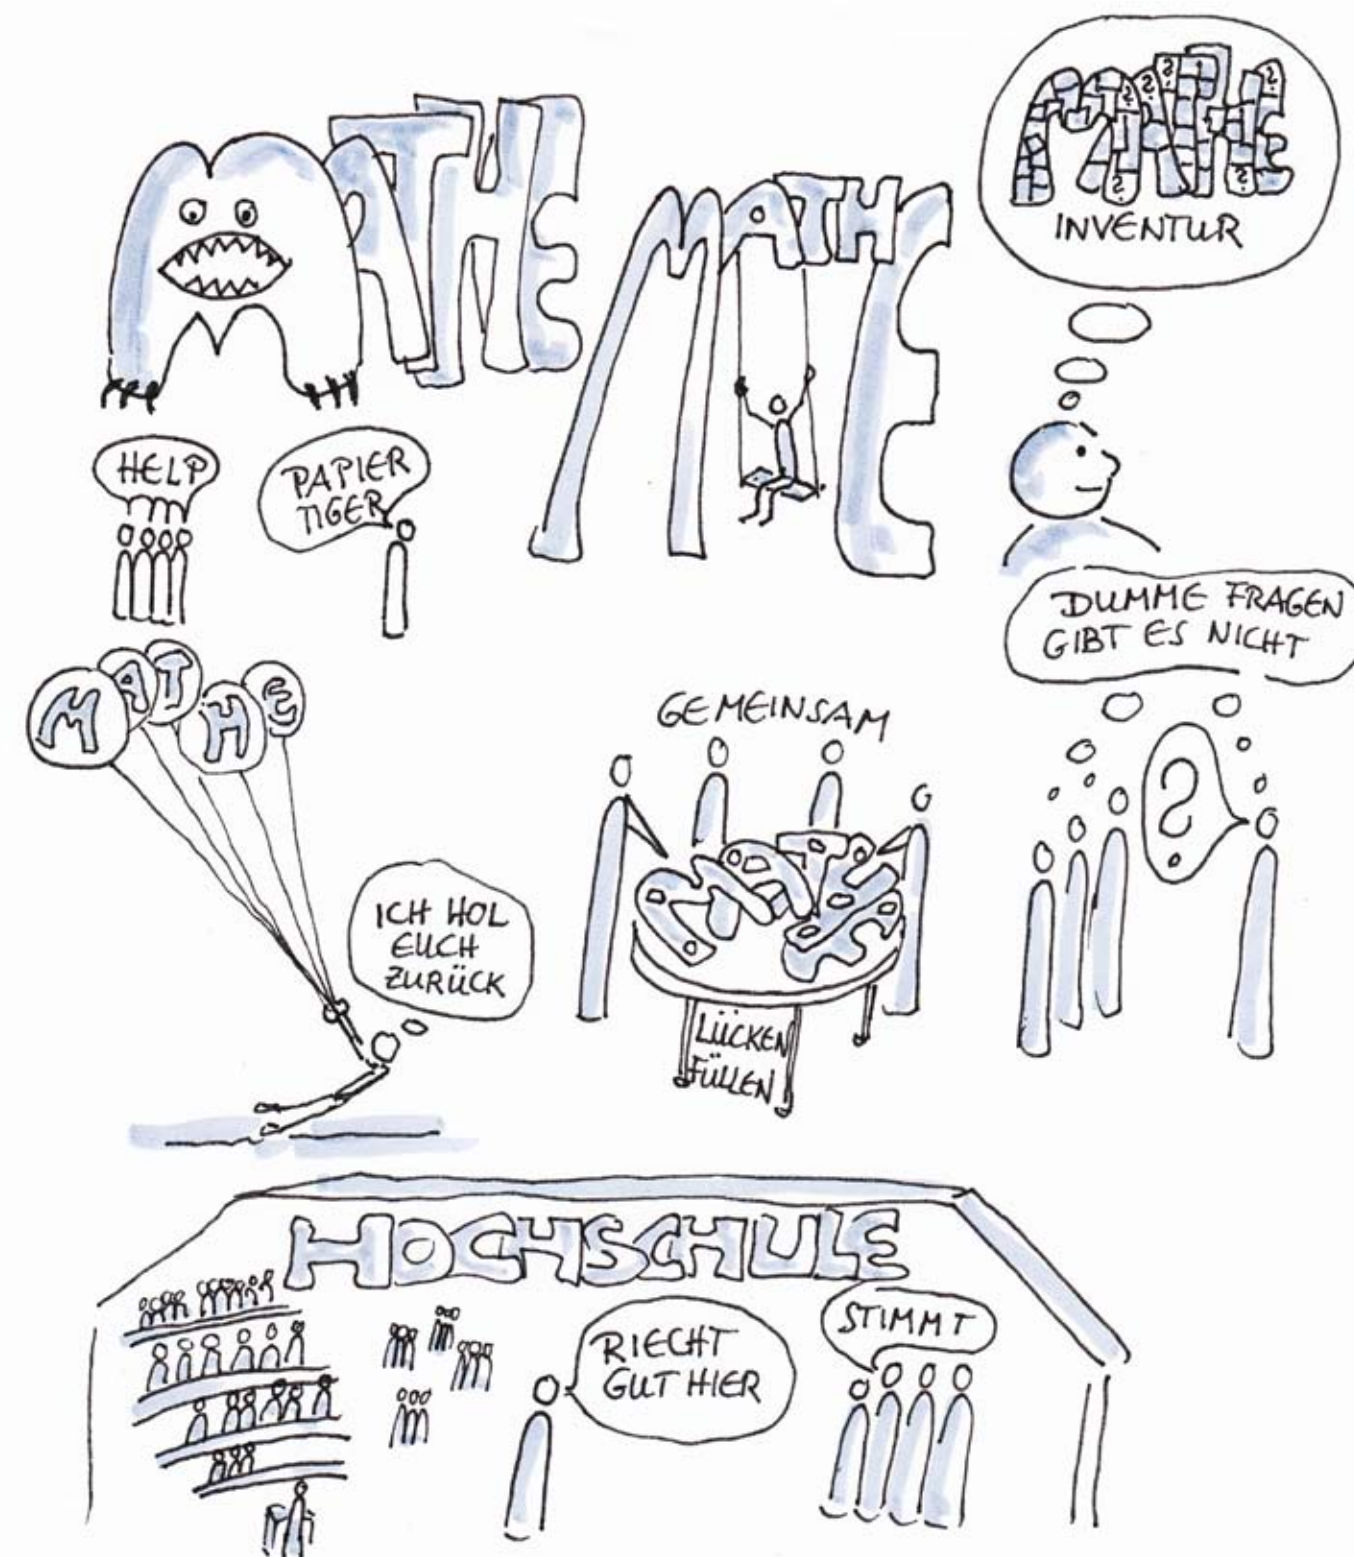 MATHE
MATHE
MATHE
INVENTUR
HELP
PAPIER
TIGER
DUMME FRAGEN
GIBT ES NICHT
MATHE
GEMEINSAM
?
ICH HOL
EUCH
ZURÜCK
MATHE
LÜCKEN
FÜLLEN
HOCHSCHULE
RIECHT
GUT HIER
STIMMT